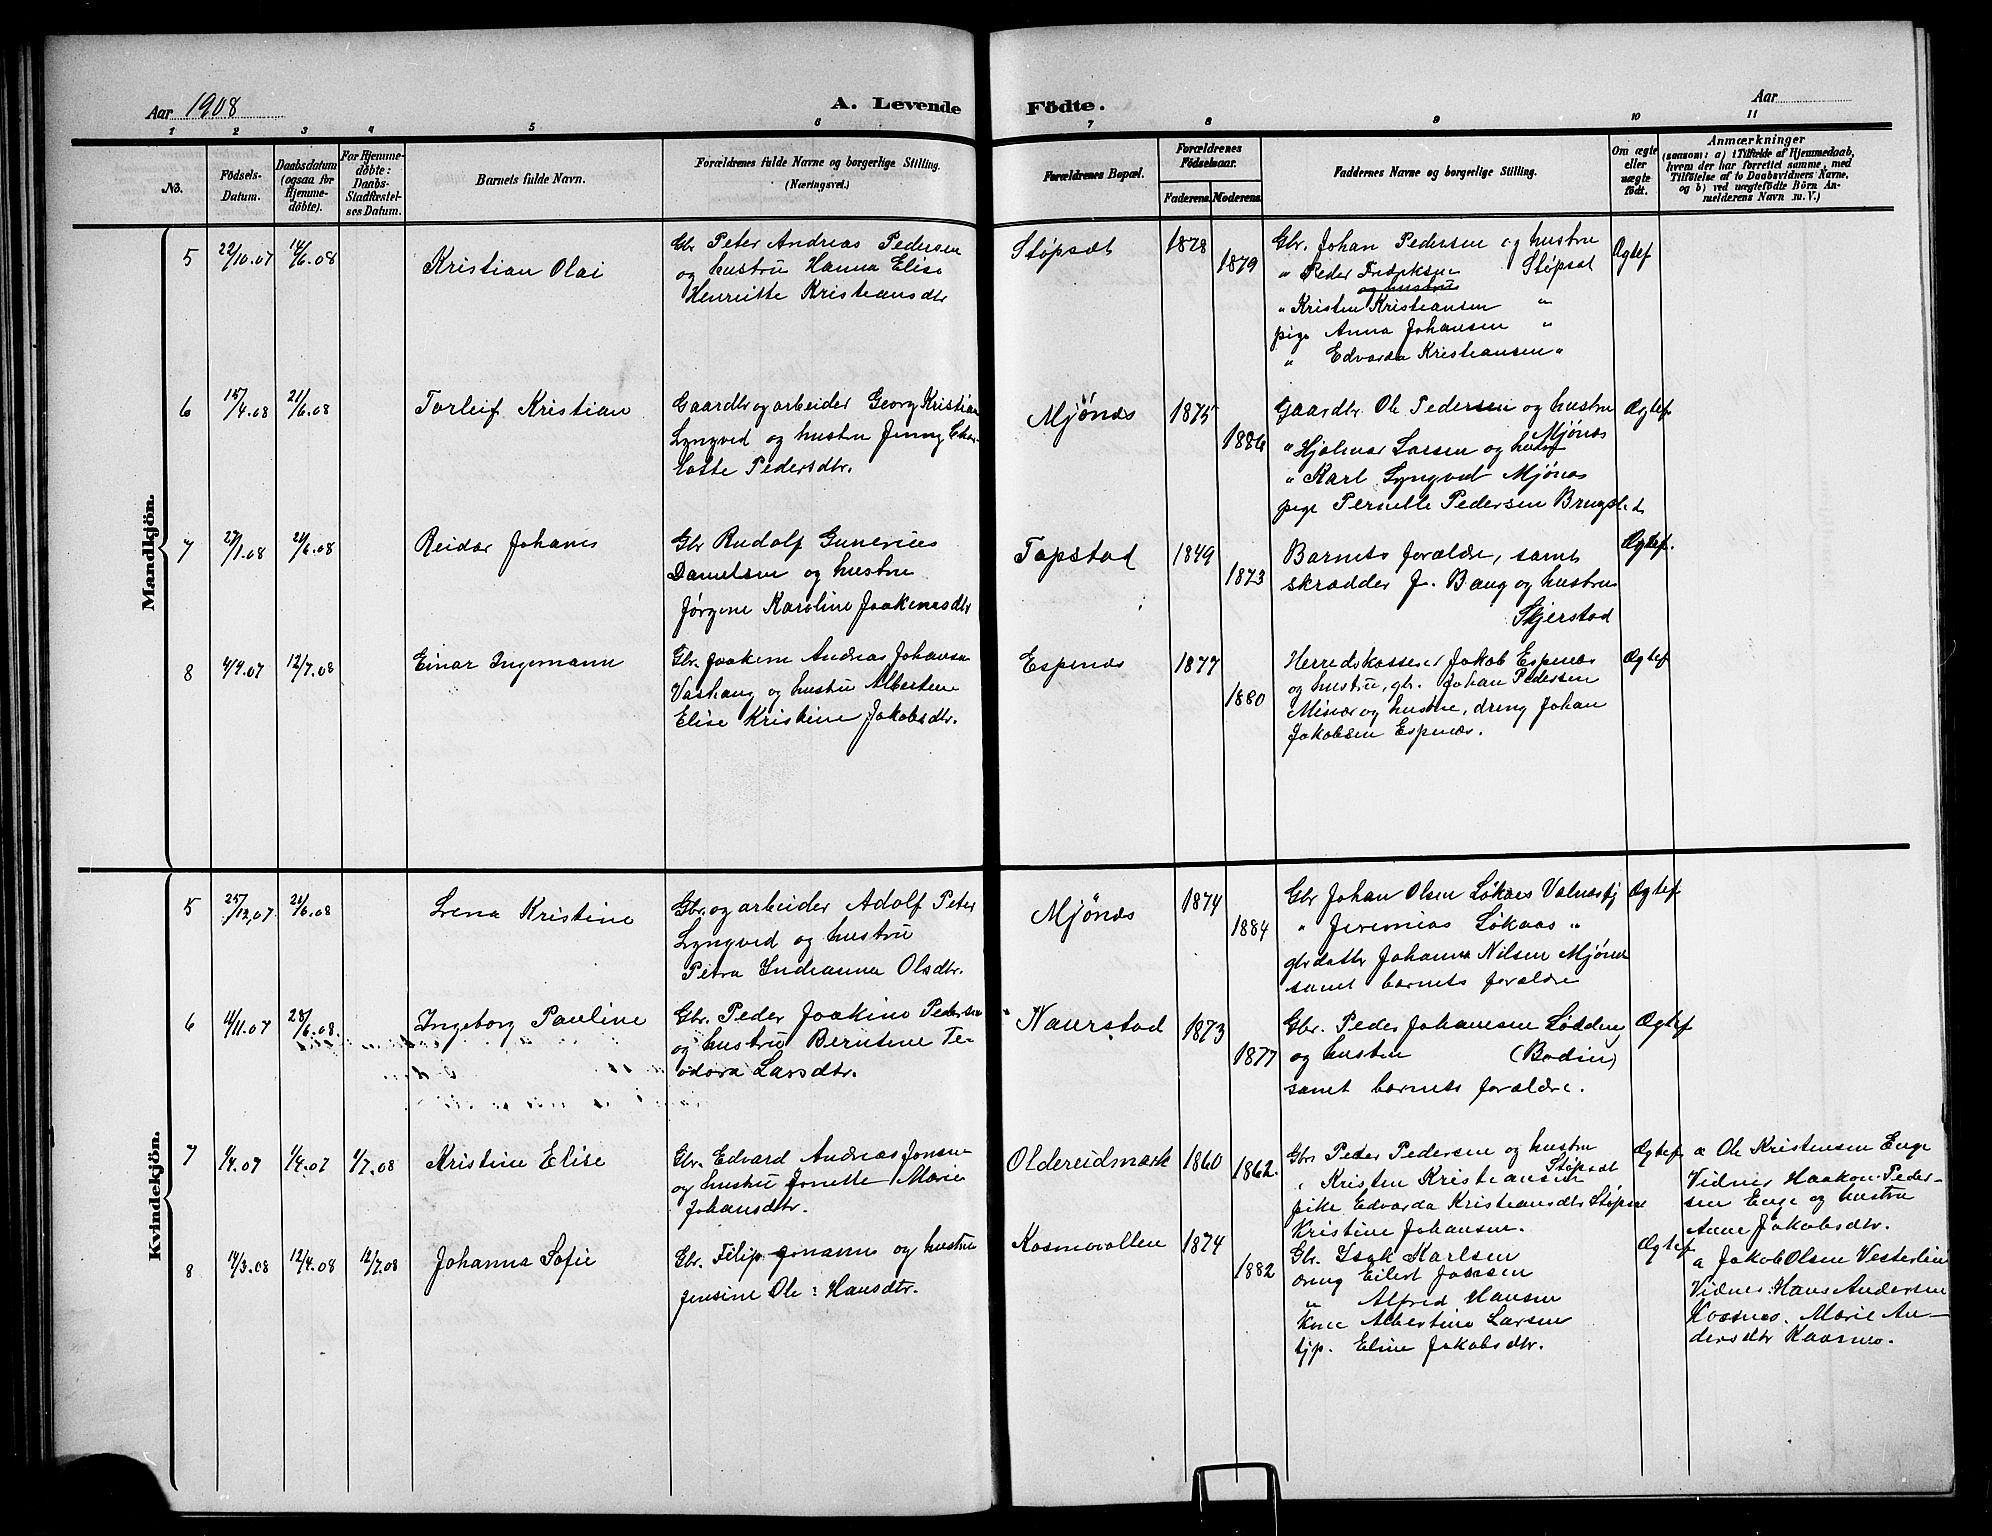 Aar 1908 A. Levende Födte. Aar
1 2 3 4 5 6 7 8 9 10 11
No. Födsels-Datum. Daabsdatum (ogsaa for Hjemmedöbte). For Hjemmedöbte: Daabs-Stadfæstelses Datum. Barnets fulde Navn. Forældrenes fulde Navne og borgerlige Stilling. (Næringsvei.) Forældrenes Bopæl. Forældrenes Födselsaar. Faderens Moderens Faddernes Navne og borgerlige Stilling. Om ægte eller uægte födt. Anmærkninger (saasom: a) i Tilfælde af Hjemmedaab, hvem der har forrettet samme, med Tilföielse af to Daabsvidners Navne, og b) ved uægtefödte Börn Anmelderens Navn m. V.)
Mandkjön.
5 22/10.07 14/6.08 Kristian Olai
Gbr Peter Andreas Pedersen
og hustru Hanna Elise
Henriette Kristiansdtr
Støpsæt 1878 1879
Gbr. Johan Pedersen og hustru
" Peder Fredriksen Støpsæt
og hustru
" Kristen Kristiansen "
pige Anna Johansen "
" Edvarda Kristiansen "
Ægtef
6 15/4.08 21/6.08 Torleif Kristian
Gaardbr og arbeider Georg Kristian
Lyngved og hustru Jenny Char-
lotte Pedersdtr.
Mjönæs 1875 1886
Gaardbr. Ole Pedersen og hustru
Mjönæs
" Hjalmar Larsen og hustr
" Karl Lyngved Mjönæs
pige Pernille Pedersen
Ægtef
7 27/1.08 21/6.08 Reidar Johanes
Gbr Rudolf Gunerius
Danielsen og hustru
Jørgine Karoline Joakimsdtr
Tapstad 1849 1873
Barnets forældre, samt
skrædder J. Baug og hustru
Skjerstad
Ægtef.
8 4/9.07 12/7.08 Einar Ingemann
Gbr. Joakim Andreas Johansen
Vashaug og hustru Albertine
Elise Kristine Jakobsdtr.
Espenæs 1877 1880
Herredskasserer Jakob Espenæs
og hustru, gbr. Johan Pedersen
Misvær og hustru, dreng Johan
Jakobsen Espenæs.
Ægtef
Kvindekjön.
5 25/12.07 21/6.08 Lena Kristine
Gbr. og arbeider Adolf Peter
Lyngved og hustru
Petra Indianna Olsdtr.
Mjönæs 1874 1884
Gbr Johan Olsen Løkaas Valnesfj
" Jeremias Løkaas "
gbrdattr Johanna Nilsen Mjönæs
samt barnets forældre
Ægtef
6 4/11.07 28/6.08. Ingeborg Pauline
Gbr. Peder Joakim Pedersen
og hustru Berntine Te-
odora Larsdtr.
Naurstad 1873 1877
Gbr. Peder Johansen Lødding
og hustru (Bodin)
samt barnets forældre.
Ægtef
7 1/4.07 1/4.07 1/7.08 Kristine Elise
Gbr. Edvard Andreas Jonsen
og hustru Jonette Marie
Johansdtr.
Oldereidmark 1860 1862
Gbr Peter Pedersen og hustru
Støpsæt
" Kristen Kristiansen
pike Edvarda Kristiansdtr Støpsæt
Kristine Johansen.
Ægtef
a Ole Kristensen Enge
Vidner Haakon Peder-
sen Enge og hustru
Anne Jakobsdtr.
8 14/3.08 12/4.08 12/7.08 Johanna Sofie
Gbr. Filip Johannes og hustru
Jensine Ole: Hansdtr.
Kosmovollen 1874 1882
Gbr. Isak Karlsen
dreng Eilert Jonsen
" Alfred Hansen
Kone Albertine Larsen
tjp. Eline Jakobsdtr.
Ægtef
a Jakob Olsen Vesterli
Vidner: Hans Andersen
Kosmo. Marie An-
dersdtr Kosmo.